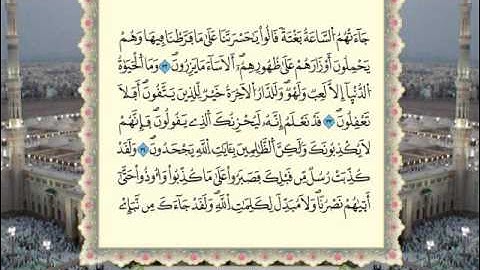 جَآءَتْهُمُ السَّاعَةُ بَغْتَةً قَالُوا۟ يَٰحَسْرَتَنَا عَلَىٰ مَا فَرَّطْنَا فِيهَا وَهُمْ
يَحْمِلُونَ أَوْزَارَهُمْ عَلَىٰ ظُهُورِهِمْ أَلَا سَآءَ مَا يَزِرُونَ وَمَا الْحَيَوٰةُ
الدُّنْيَآ إِلَّا لَعِبٌ وَلَهْوٌ وَلَلدَّارُ الَاخِرَةُ خَيْرٌ لِّلَّذِينَ يَتَّقُونَ أَفَلَا
تَعْقِلُونَ قَدْ نَعْلَمُ إِنَّهُۥ لَيُحْزِنُكَ الَّذِے يَقُولُونَ فَإِنَّهُمْ
لَا يُكْذِبُونَكَ وَلَٰكِنَّ الظَّٰلِمِينَ بِـَٔايَٰتِ اللَّهِ يَجْحَدُونَ وَلَقَدْ
كُذِّبَتْ رُسُلٌ مِّن قَبْلِكَ فَصَبَرُوا۟ عَلَىٰ مَا كُذِّبُوا۟ وَأُوذُوا۟ حَتَّىٰٓ
أَتَىٰهُمْ نَصْرُنَا وَلَا مُبَدِّلَ لِكَلِمَٰتِ اللَّهِ وَلَقَدْ جَآءَكَ مِن نَّبَإِےْ